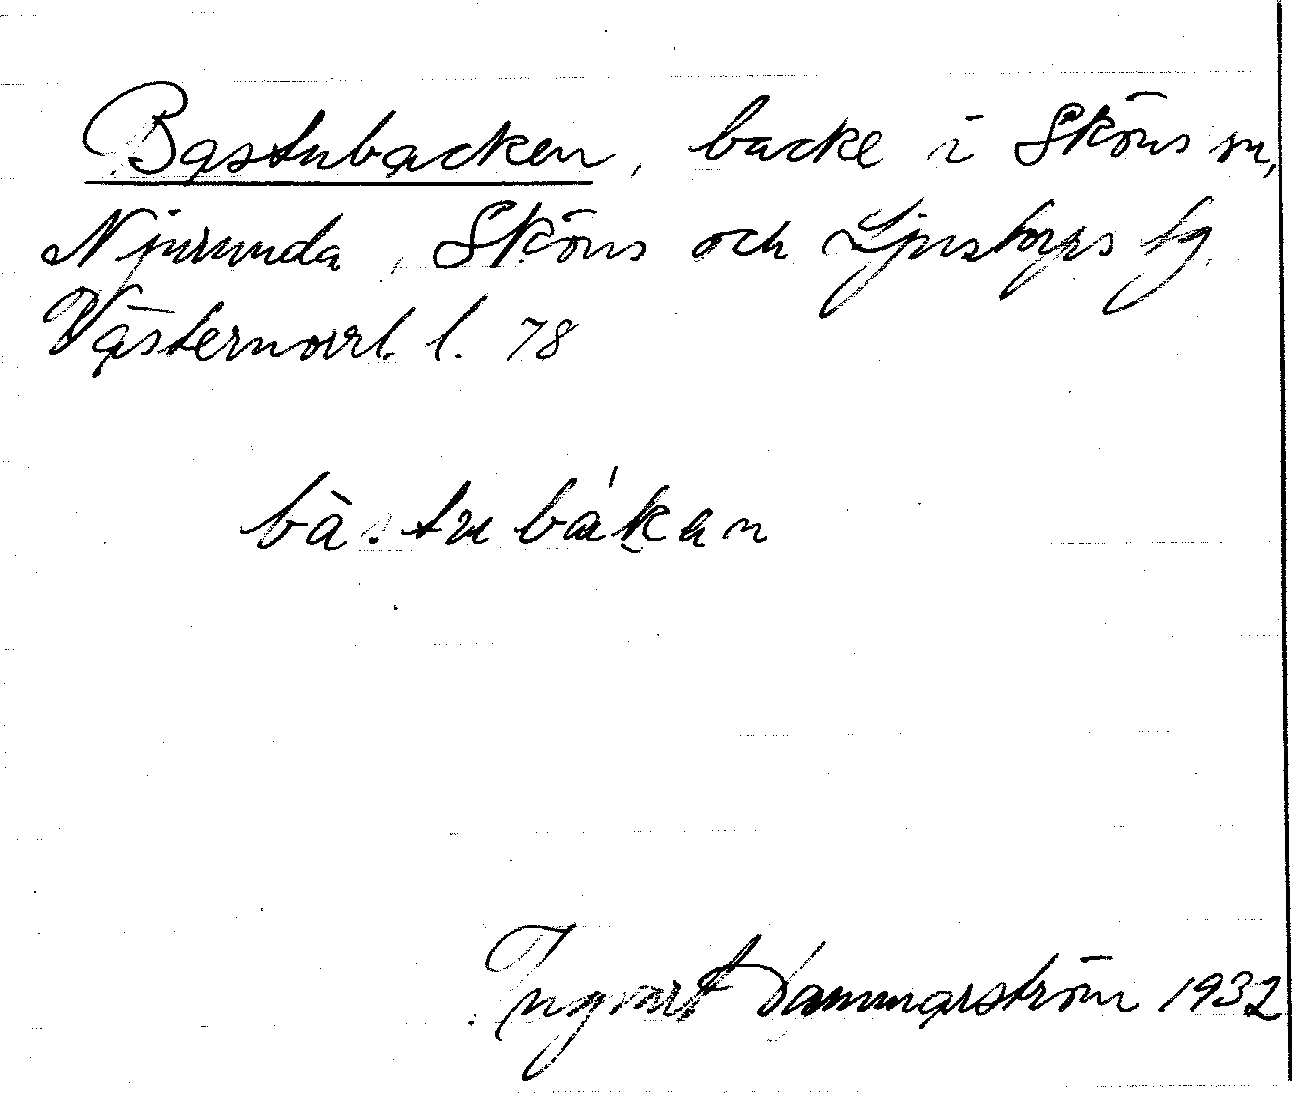 Bastubacken, backe i Sköns sn,
Njurunda, Sköns och Ljustorps tg.
Västernorrl. l. 78
bàstubákan
Ingvart Hammarström 1932